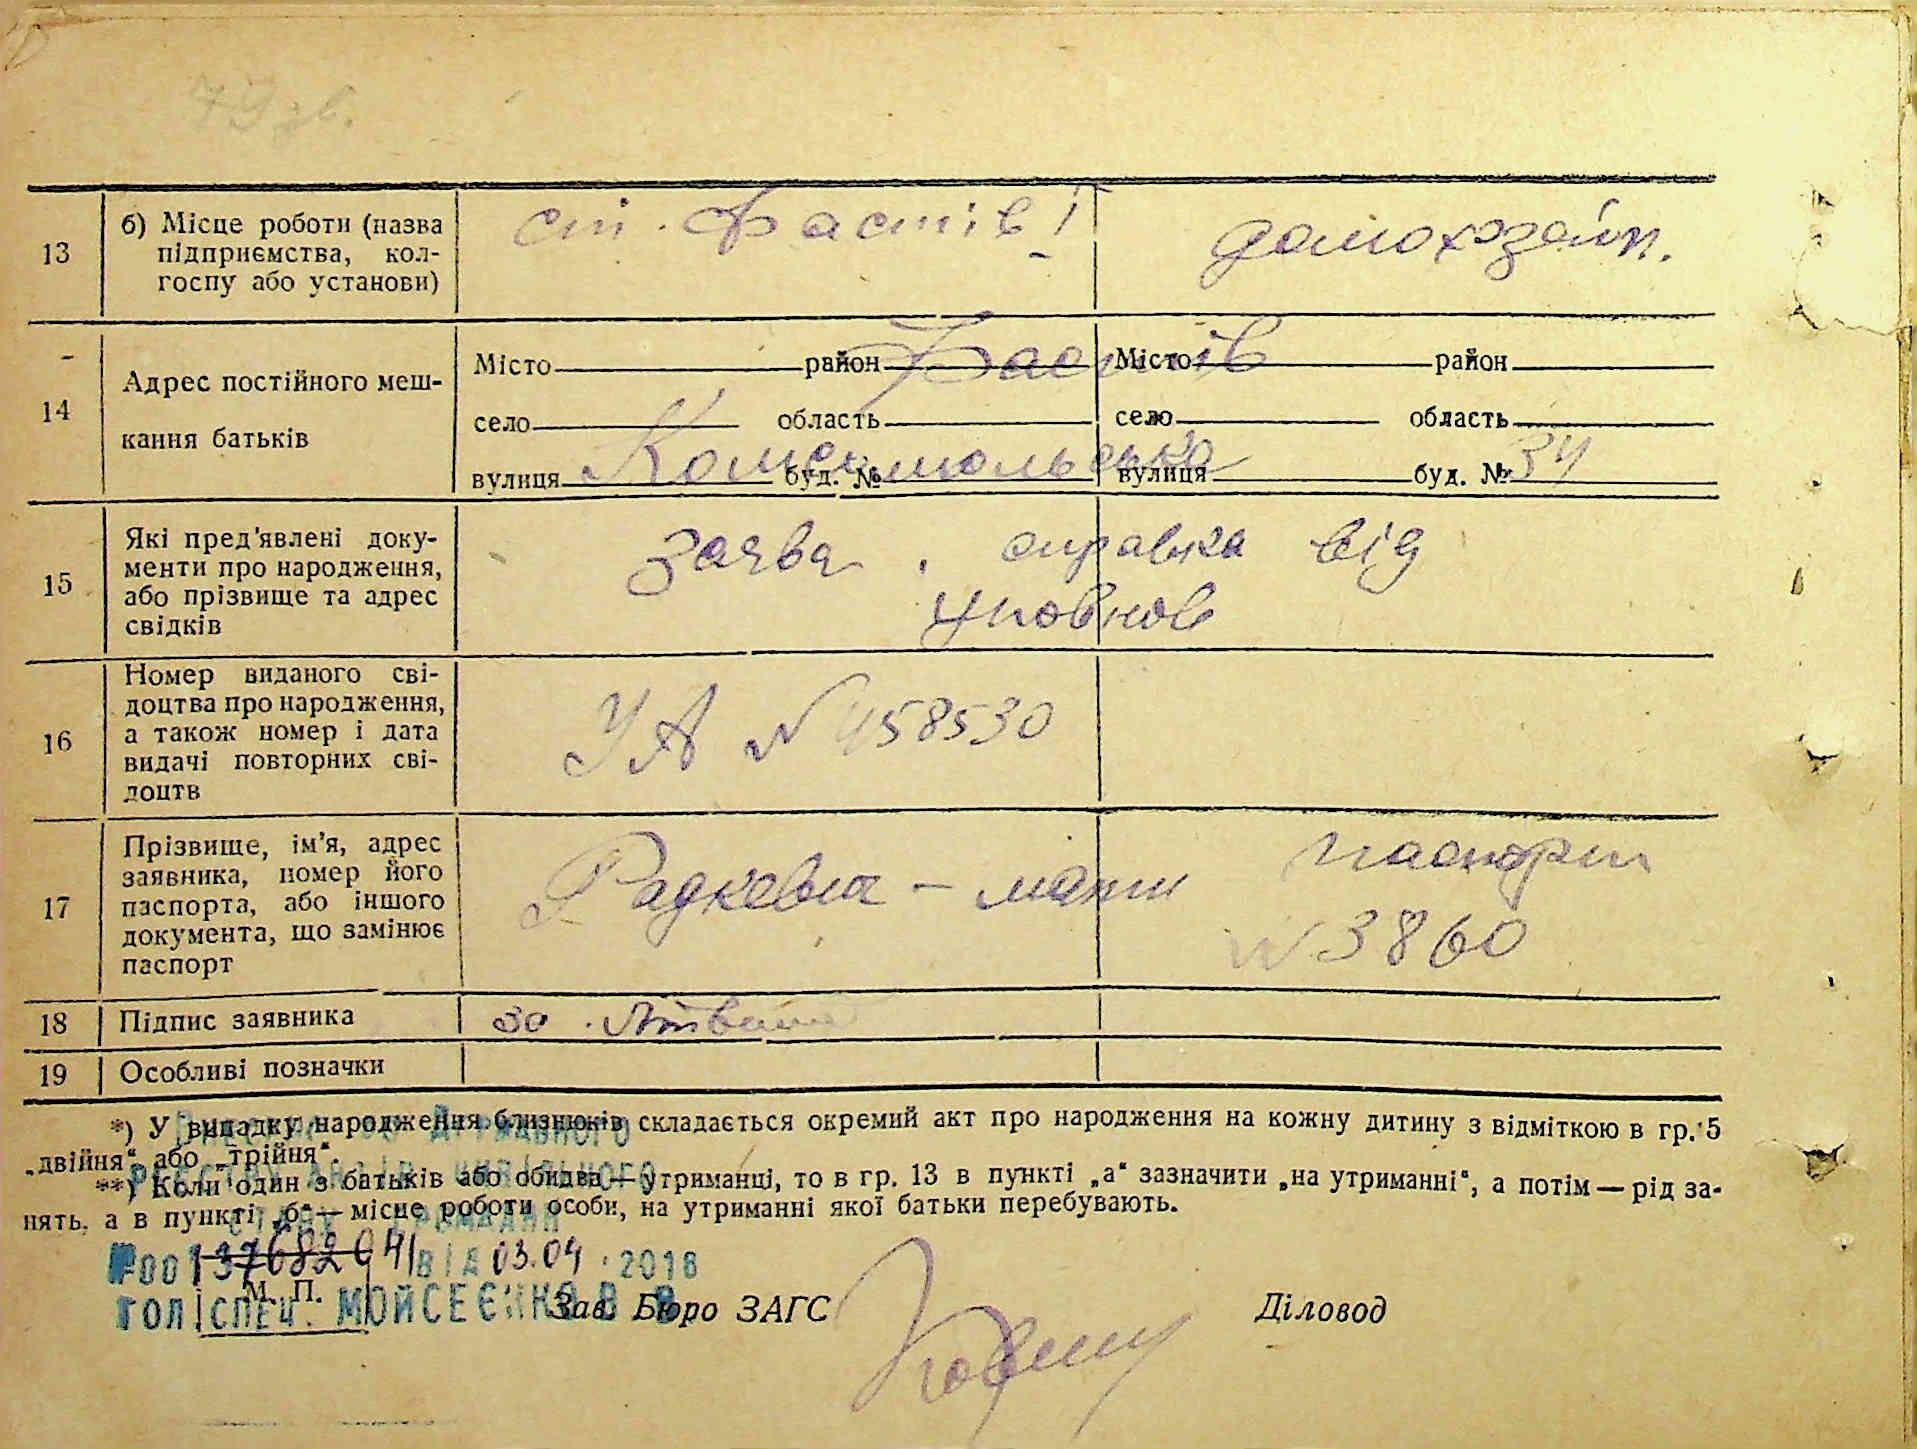 79 зв.
13
б) Місце роботи (назва
підприємства, кол-
госпу або установи)
ст. Фастів І
домохозяйк.
14
Адрес постійного меш-
кання батьків
Місто район Фастів Місто район
село область село область
вулиця Комсомольська буд. № вулиця буд. № 34
15
Які пред'явлені доку-
менти про народження,
або прізвище та адрес
свідків
заява, справка від
уповнов
16
Номер виданого сві-
доцтва про народження,
а також номер і дата
видачі повторних сві-
доцтв
УА № 458530
17
Прізвище, ім'я, адрес
заявника, номер його
паспорта, або іншого
документа, що замінює
паспорт
Радкевич - мати
паспорт
№ 3860
18
Підпис заявника
за
19
Особливі позначки
*) У випадку народження близнюків складається окремий акт про народження на кожну дитину з відміткою в гр. 5
„двійня“ або „трійня“.
**) Коли один з батьків або обидва — утриманці, то в гр. 13 в пункті „а“ зазначити „на утриманні“, а потім — рід за-
нять, а в пункті „б“ — місце роботи особи, на утриманні якої батьки перебувають.
Державного
реєстру актів цивільного
стану громадян
від 03.04.2018
М. П.
гол. спец. Мойсеєнко В. В.
Зав. Бюро ЗАГС
Діловод